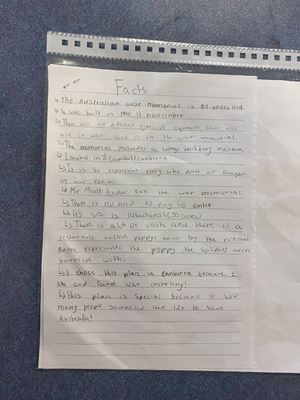 Facts
↳ The Australian war memorial is 80 years old
↳ It was built in 1941 11 november
↳ There are all different types of equipment that was
in war that is in the war memorial
↳ The memorial includes a large military museum
↳ Located in Canberra
↳ It is to represent every who died or fought
in war for us.
↳ Mr Matt Ander ran the war memorial
↳ There is no need to pay to enter
↳ Its size is
↳ There is a lot of visits and there is a
called poppys near by the
name represents the poppy the soldiers were
burried with.
↳ I chose this place in canberra because I
and found war
↳ this place is special because it how
many people their life to save
Australia!